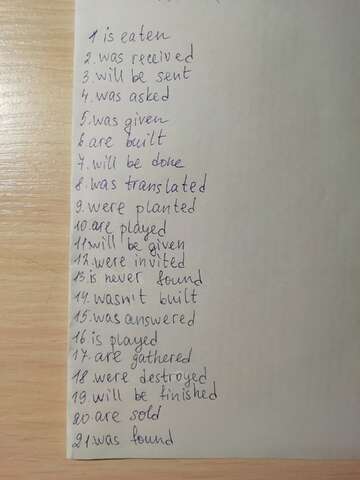 1 is eaten
2. was received
3. will be sent
4. was asked
5. was given
6. are built
7. will be done
8. was translated
9. were planted
10. are played
11. will be given
12. were invited
13. is never found
14. wasn't built
15. was answered
16 is played
17. are gathered
18. were destroyed
19. will be finished
20. are sold
21. was found